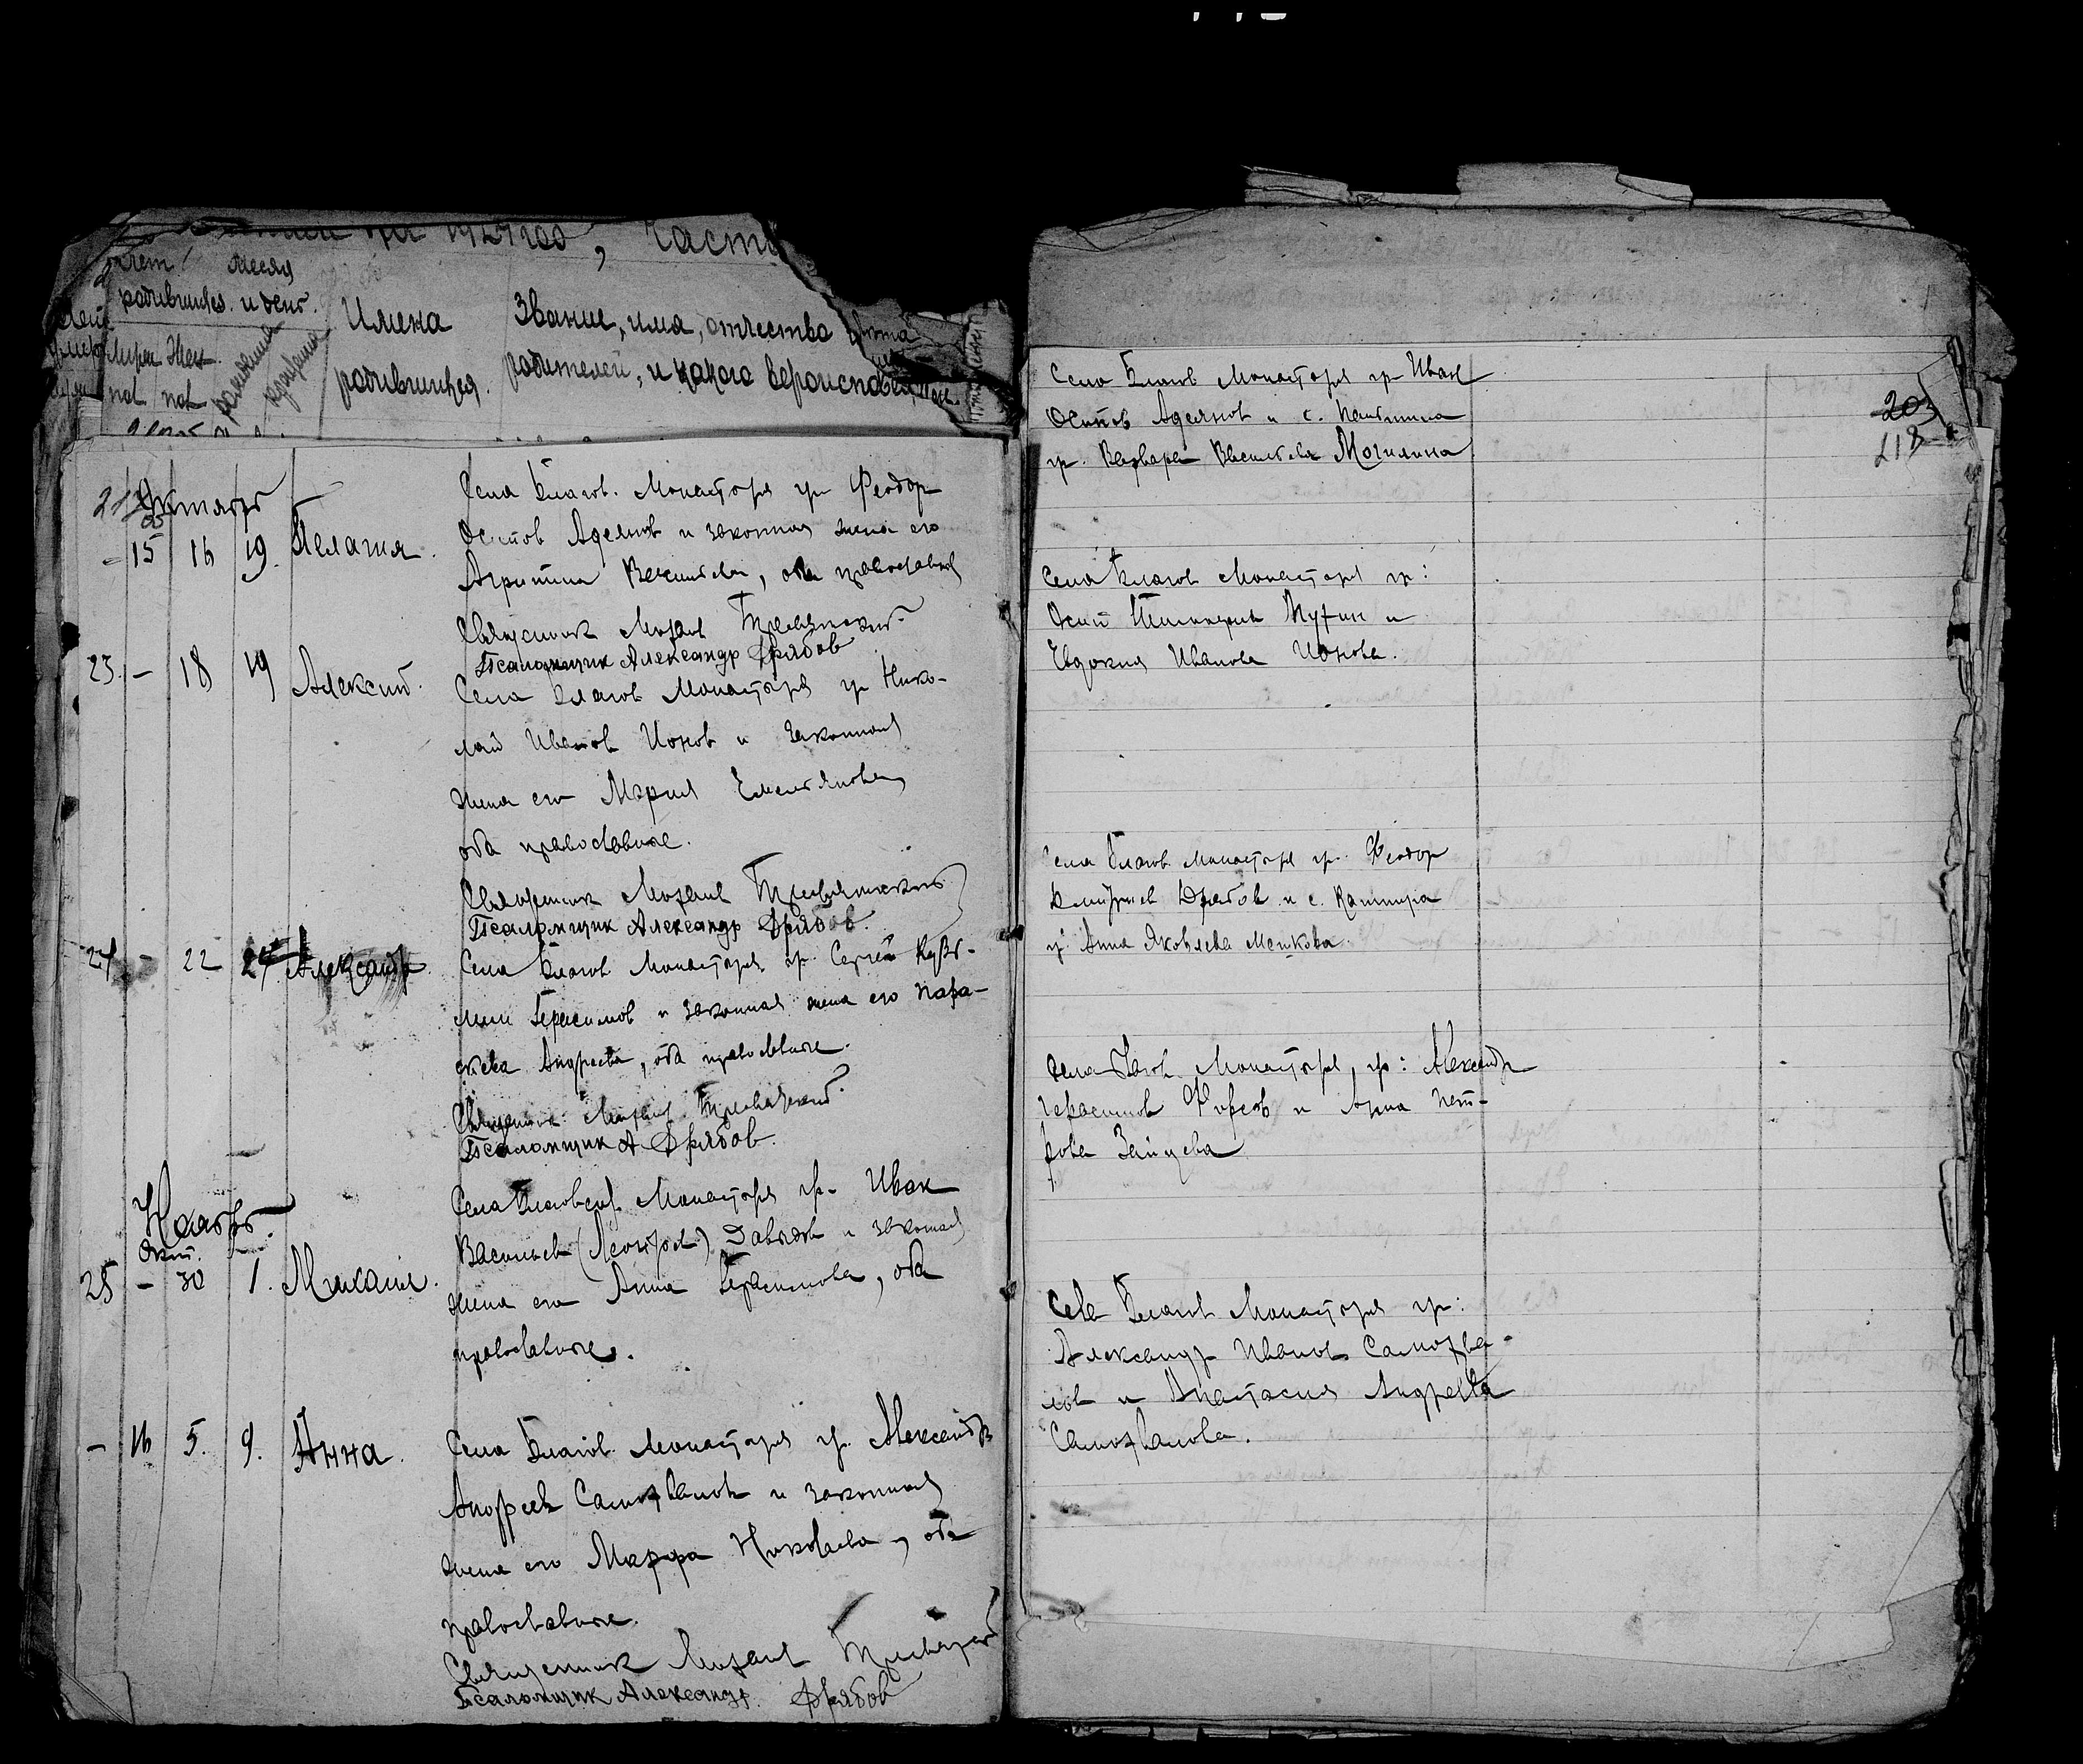 на 1921 год, Часть
Счет Месяц
родившихся. и день.
Имена Звание, имя, отчество
родившихся. родителей, и какого вероисповед
Муж Жен
рождения
крещения
пол пол
Октябрь
15 16 19. Пелагия.
Села Благов. Монастыря гр Феодор
Осипов Аделянов и законная жена его
Агрипина Васильева, оба православн
Священник Михаил
Псаломщик Александр Дрябов
23. - 18 19 Алексий.
Села Благов Монастыря гр Нико-
лай Иванов Ионов и законная
жена его Мария Емельянова,
оба православные.
Священник Михаил
Псаломщик Александр Дрябов.
24 - 22 24 Александр.
Села Благов Монастыря гр. Сергей Кузь-
мин Герасимов и законная жена его Пара-
скева Андреева, оба православные.
Священник Михаил
Псаломщик А Дрябов.
Ноябрь.
Окт.
25 - 30 1. Михаил.
Села Монастыря гр. Иван
Васильев Давыдов и законная
жена его Анна Герасимова, оба
православные.
- 16 5. 9. Анна.
Села Благов. Монастыря гр. Александр
Андреев Самохвалов и законная
жена его Марфа Николаева, оба
православные.
Священник Михаил
Псаломщик Александр. Дрябов
Села Благов Монастыря гр Иван
Осипов Аделянов и с.
гр. Варвара Васильева Могилина
203
218
Села Благов Монастыря гр:
Осип и
Евдокия Иванова Ионова.
Села Благов Монастыря гр. Феодор
Дмитриев Дрябов и с. Кашпира
гр Анна Яковлева Мешкова.
Села Благов Монастыря, гр: Александр
Герасимов Фирсов и Анна Пет-
рова Зайцева
Села Благов Монастыря гр:
Александр Иванов Самохва-
лов и Анастасия Андреева
Самохвалова.